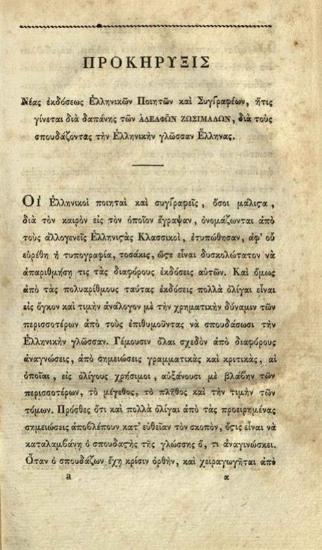 ΠΡΟΚΗΡΥΞΙΣ
Νέας ἐκδόσεως Ἑλληνικῶν Ποιητῶν καὶ Συγγραφέων, ἥτις
γίνεται διὰ δαπάνης τῶν ΑΔΕΛΦΩΝ ΖΩΣΙΜΑΔΩΝ, διὰ τοὺς
σπουδάζοντας τὴν Ἑλληνικὴν γλῶσσαν Ἕλληνας.
Οἱ Ἑλληνικοὶ ποιηταὶ καὶ συγγραφεῖς, ὅσοι μάλιϛα,
διὰ τὸν καιρὸν εἰς τὸν ὁποῖον ἔγραψαν, ὀνομάζονται ἀπὸ
τοὺς ἀλλογενεῖς Ἑλληνιϛὰς Κλασσικοὶ, ἐτυπώθησαν, ἀφ' οὗ
εὑρέθη ἡ τυπογραφία, τοσάκις, ὥϛε εἶναι δυσκολώτατον νὰ
ἀπαριθμήσῃ τις τὰς διαφόρους ἐκδόσεις αὐτῶν. Καὶ ὅμως
ἀπὸ τὰς πολυαρίθμους ταύτας ἐκδόσεις πολλὰ ὀλίγαι εἶναι
εἰς ὄγκον καὶ τιμὴν ἀνάλογον μὲ τὴν χρηματικὴν δύναμιν τῶν
περισσοτέρων ἀπὸ τοὺς ἐπιθυμοῦντας νὰ σπουδάσωσι τὴν
Ἑλληνικὴν γλῶσσαν. Γέμουσιν ὅλαι σχεδὸν ἀπὸ διαφόρους
ἀναγνώσεις, ἀπὸ σημειώσεις γραμματικὰς καὶ κριτικὰς, αἱ
ὁποῖαι, εἰς ὀλίγους χρήσιμοι, αὐξάνουσι μὲ βλάβην τῶν
περισσοτέρων, τὸ μέγεθος, τὸ πλῆθος καὶ τὴν τιμὴν τῶν
τόμων. Πρόσθες ὅτι καὶ πολλὰ ὀλίγαι ἀπὸ τὰς προειρημένας
σημειώσεις ἀποβλέπουν κατ' εὐθεῖαν τὸν σκοπὸν, ὅϛις εἶναι νὰ
καταλαμβάνῃ ὁ σπουδαϛὴς τῆς γλώσσης ὅ, τι ἀναγινώσκει.
Ὅταν ὁ σπουδάζων ἔχῃ κρίσιν ὀρθὴν, καὶ χειραγωγῆται ἀπὸ
a α